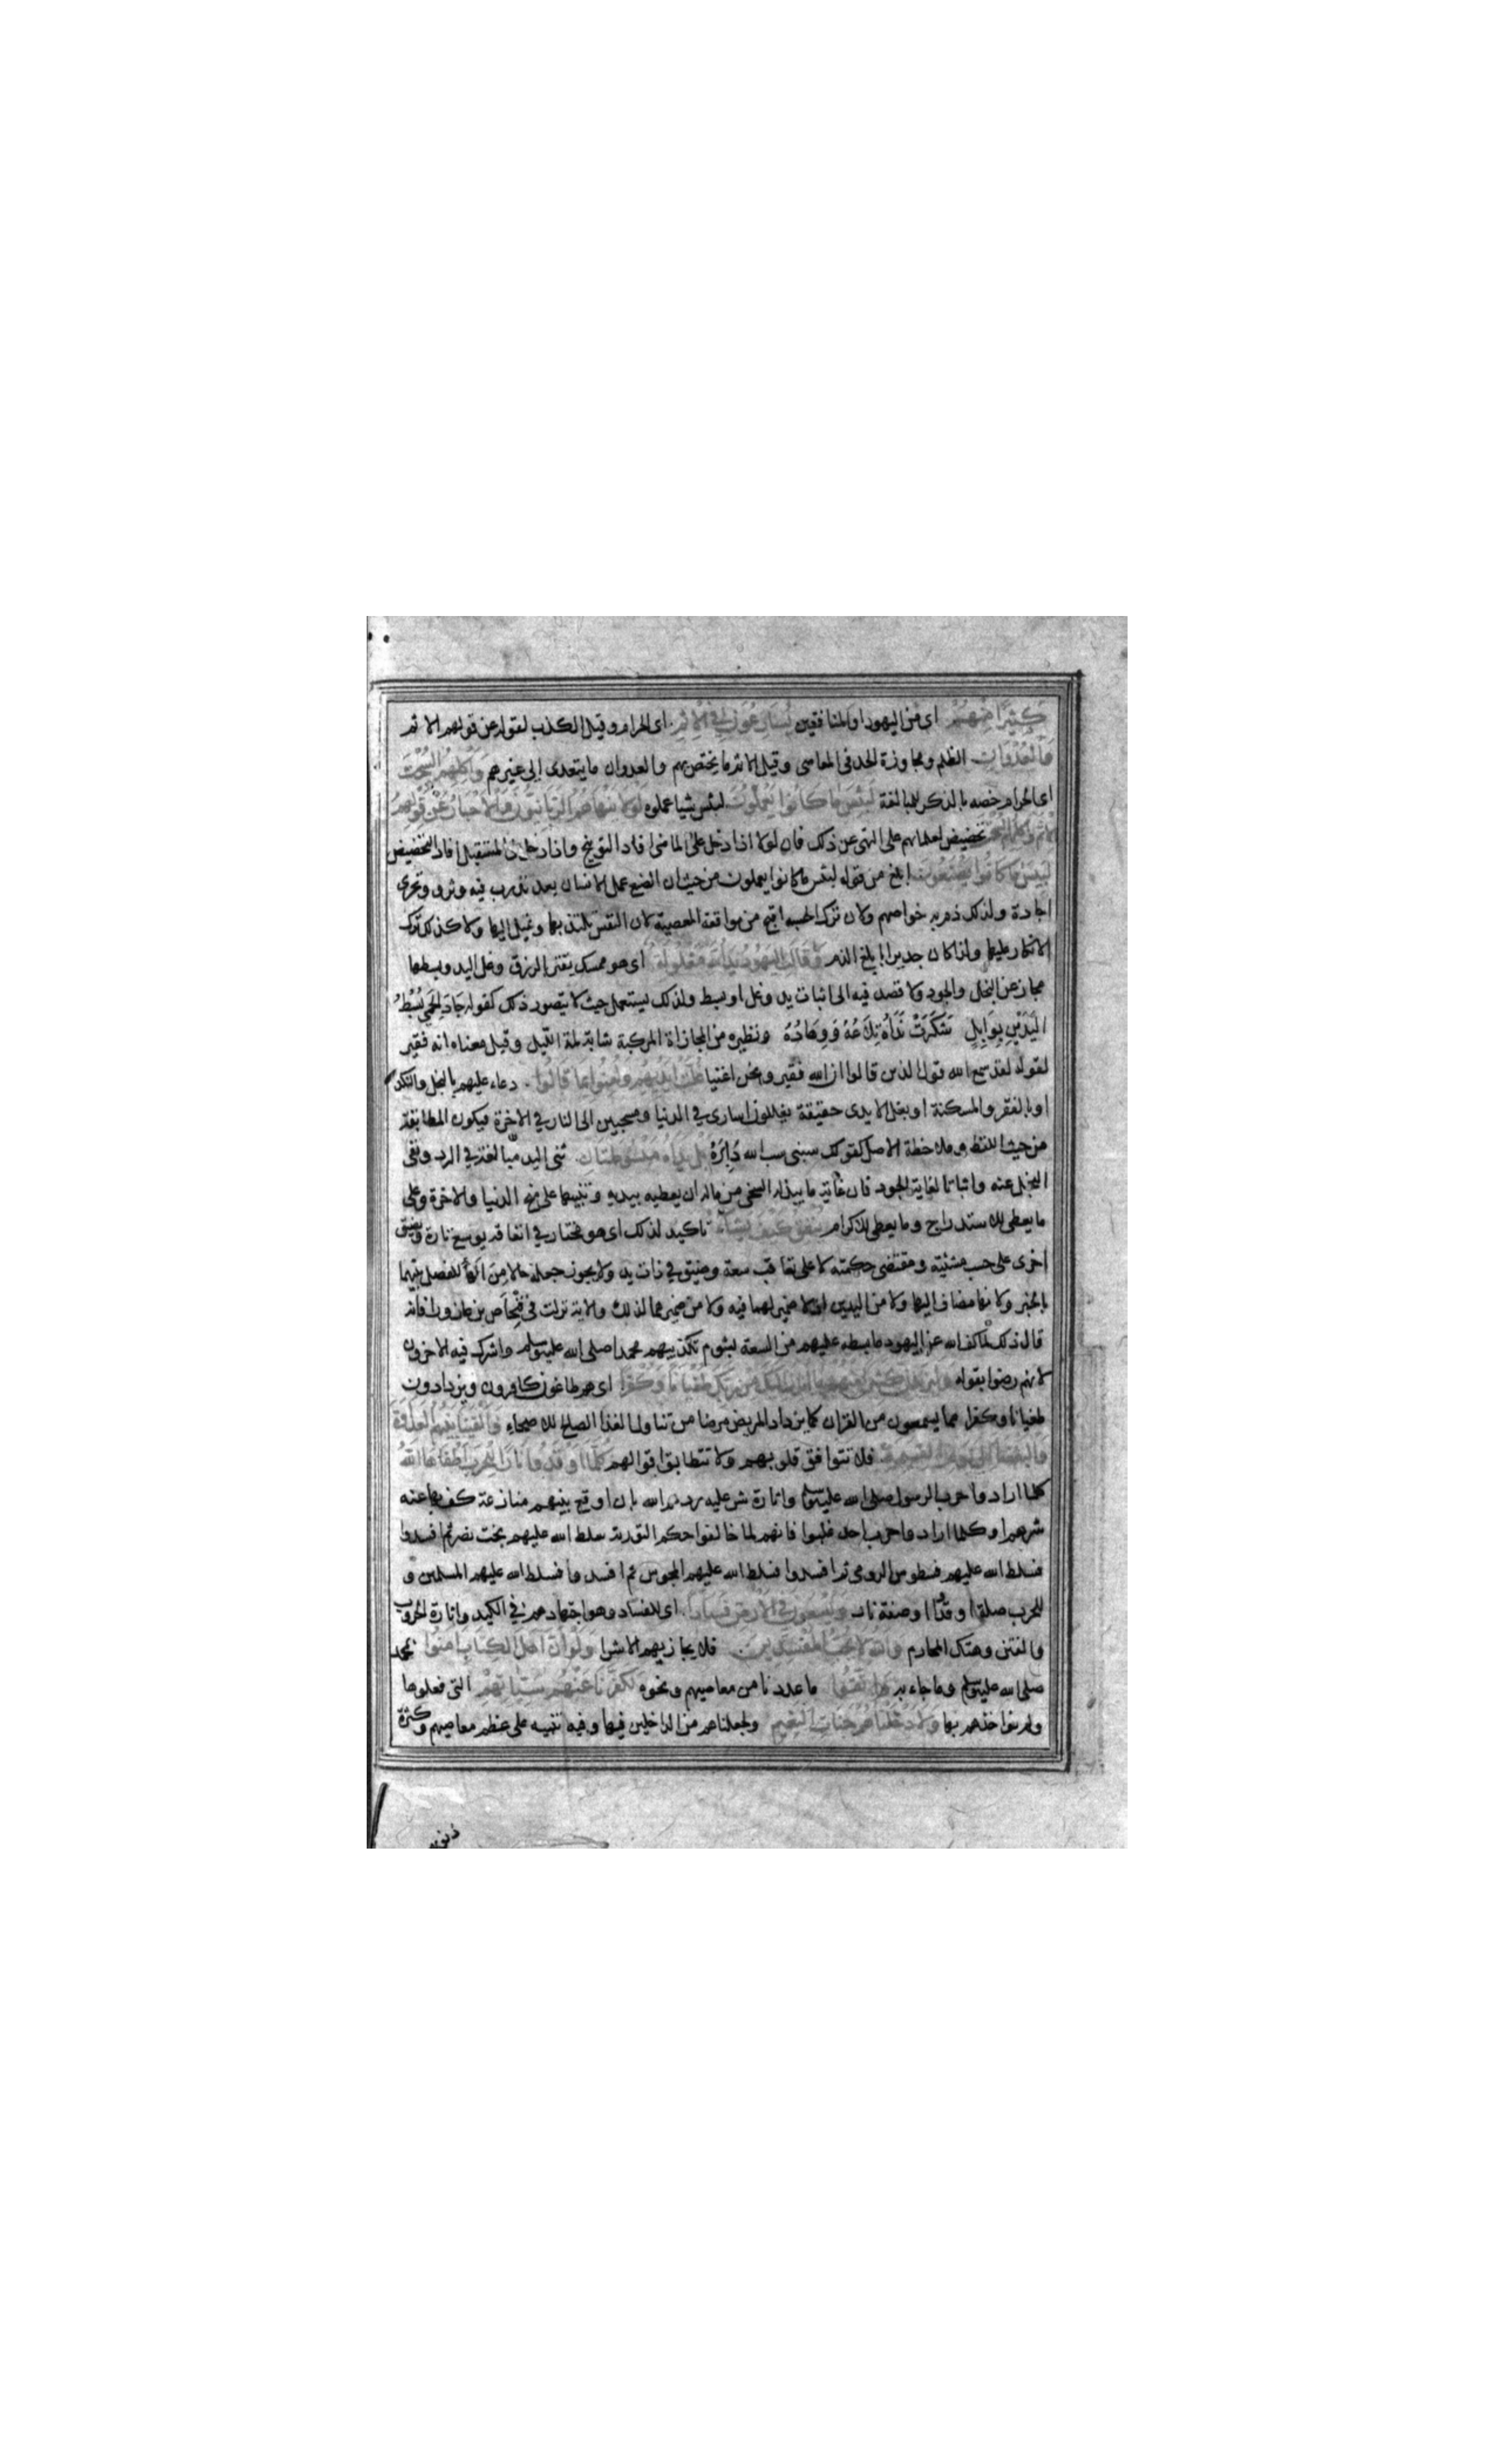 كَثِيرًا مِنْهُمْ اى من اليهود او المنافقين يُسَارِعُونَ فِي الْاِثْمِ اى الحرام وقيل الكذب لقوله عن قولهم الاثم
وَالْعُدْوَانِ الظلم ومجاوزة الحد فى المعاصى وقيل الاثم ما يختص بهم والعدوان ما يتعدى الى غيرهم وَاَكْلِهِمُ السُّحْتَ
اى الحرام خصه بالذكر للمبالغة لَبِئْسَ مَا كَانُوا يَعْمَلُونَ لبئس شيا عملوه لَوْلَا يَنْهَاهُمُ الرَّبَّانِيُّونَ وَالْاَحْبَارُ عَنْ قَوْلِهِمُ
الْاِثْمَ وَاَكْلِهِمُ السُّحْتَ تحضيض لعلمائهم على النهى عن ذلك فان لولا اذا دخل على الماضى افاد التوبيخ واذا دخل على المستقبل افاد التحضيض
لَبِئْسَ مَا كَانُوا يَصْنَعُونَ ابلغ من قوله لبئس ما كانوا يعملون من حيث ان الصنع عمل الانسان بعد تدرب فيه وترو وتحرى
اجادة ولذلك ذم به خواصهم ولان ترك الحسبة اقبح من مواقعة المعصية لان النفس تلتذ بها وتميل اليها ولا كذلك ترك
الانكار عليها ولذا كان جديرا بابلغ الذم وَقَالَتِ الْيَهُودُ يَدُ اللهِ مَغْلُولَةٌ اى هو ممسك يقتر بالرزق وغل اليد وبسطها
مجاز عن البخل والجود ولا قصد فيه الى اثبات يد وغل او بسط ولذلك يستعمل حيث لا يتصور ذلك كقوله جَادَ الحِمَى بُسُطُ
الْيَدَيْنِ بِوَابِلٍ شَكَرَتْ نَدَاهُ تِلَاعُهُ وَوِهَادُهُ ونظيره من المجازاة المركبة شابت لمة الليل وقيل معناه انه فقير
لقوله لقد سمع الله قول الذين قالوا ان الله فقير ونحن اغنيا غُلَّتْ اَيْدِيهِمْ وَلُعِنُوا بِمَا قَالُوا دعاء عليهم بالبخل والنكد
او بالفقر والمسكنة او بغل الايدى حقيقة يغللون اسارى في الدنيا ومسحبين الى النار في الاخرة فيكون المطابقة
من حيث اللفظ وملاحظة الاصل كقولك سبنى سب الله دَابِرَهُ بَلْ يَدَاهُ مَبْسُوطَتَانِ ثنى اليد مبالغة في الرد ونفى
البخل عنه واثباتا لغاية الجود فان غاية ما يبذله السخى من ماله ان يعطيه بيديه وتنبيها على منح الدنيا والاخرة وعلى
ما يعطى للاستدراج وما يعطى للاكرام يُنْفِقُ كَيْفَ يَشَاءُ تاكيد لذلك اى هو مختار في انفاقه يوسع تارة ويضيق
اخرى على حسب مشئيته ومقتضى حكمته لا على تعاقب سعة وضيق في ذات يد ولا يجوز جعله حالا مِنَ الهَأ للفصل بينهما
بالخبر ولانها مضاف اليها ولا من اليدين اذ لا ضمير لهما فيه ولا من ضميرهما لذلك والاية نزلت فى فِنْحَاص بن عازوراء فانه
قال ذلك لما كف الله عن اليهود ما بسط عليهم من السعة بشوم تكذيبهم محمدا صلى الله عليه وسلم واشرك فيه الاخرون
لانهم رضوا بقوله وَلَيَزِيدَنَّ كَثِيرًا مِنْهُمْ مَا اُنْزِلَ اِلَيْكَ مِنْ رَبِّكَ طُغْيَانًا وَكُفْرًا اى هم طاغون كافرون ويزدادون
طغيانا وكفرا مما يسمعون من القران كما يزداد المريض مرضا من تناول الغذا الصالح للاصحاء وَاَلْقَيْنَا بَيْنَهُمُ الْعَدَاوَةَ
وَالْبَغْضَاءَ اِلَى يَوْمِ الْقِيَمَةِ فلا تتوافق قلوبهم ولا تتطابق اقوالهم كُلَّمَا اَوْقَدُوا نَارًا لِلْحَرْبِ اَطْفَاَهَا اللهُ
كلما ارادوا حرب الرسول صلى الله عليه وسلم واثارة شر عليه ردهم الله بان اوقع بينهم منازعة كف بها عنه
شرهم او كلما ارادوا حرب احد غلبوا فانهم لما خالفوا حكم التورية سلط الله عليهم بخت نصر ثم افسدوا
فسلط الله عليهم فسطوس الرومى ثم افسدوا فسلط الله عليهم المجوس ثم افسدوا فسلط الله عليهم المسلمين و
للحرب صلة اوقدوا او صفة نار وَيَسْعَوْنَ فِي الْاَرْضِ فَسَادًا اى للفساد وهو اجتهادهم في الكيد واثارة الحروب
والفتن وهتك المحارم وَاللهُ لَا يُحِبُّ الْمُفْسِدِينَ فلا يجازيهم الا شرا وَلَوْ اَنَّ اَهْلَ الْكِتَابِ اٰمَنُوا بمحمد
صلى الله عليه وسلم وما جاء به وَاتَّقَوْا ما عددنا من معاصيهم ونحوه لَكَفَّرْنَا عَنْهُمْ سَيِّئَاتِهِمْ التى فعلوها
ولم نواخذهم بها وَلَاَدْخَلْنَاهُمْ جَنَّاتِ النَّعِيمِ ولجعلناهم من الداخلين فيها وفيه تنبيه على عظم معاصيهم وكثرة
ذنوبهم